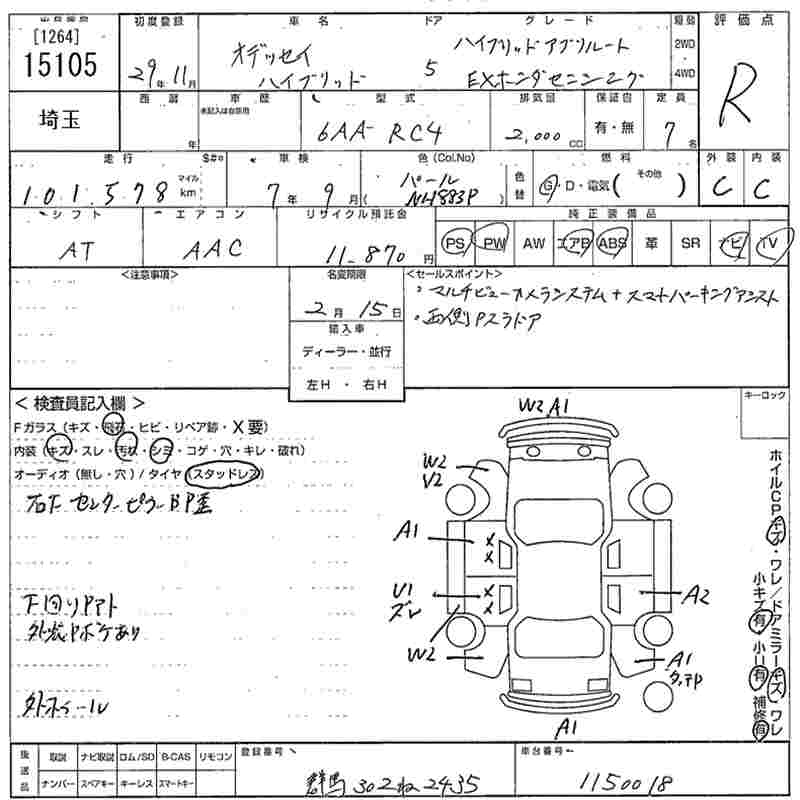 [1264]
15105
埼玉
初度登録
29年11月
車名
オデッセイ
ハイブリッド
ドア
5
グレード
ハイブリッドアブソルート
EXホンダセンシング
2WD
4WD
評価点
R
西暦
年
車歴
未記入は自家用
型式
6AA-RC4
排気量
2,000cc
保証書
有・無
定員
7名
走行
101,578
マイル
km
S#※
車検
7年9月
色(Col.No)
パール
(NH883P)
色替
燃料
G・D・電気( その他 )
外装
C
内装
C
シフト
AT
エアコン
AAC
リサイクル預託金
11,870円
純正装備品
PS PW AW エアB ABS 革 SR ナビ TV
<注意事項>
名変期限
2月15日
輸入車
ディーラー・並行
左H・右H
<セールスポイント>
・マルチビューカメラシステム+スマートパーキングアシスト
・両側Pスラドア
<検査員記入欄>
Fガラス(キズ・飛石・ヒビ・リペア跡・X要)
内装(キズ・スレ・汚れ・シミ・コゲ・穴・キレ・破れ)
オーディオ(無し・穴)/タイヤ(スタッドレス)
右F センターピラーBP歪
下回りPアト
外装Pボケあり
外ホイール
キーロック
W2 A1
W2
V2
A1
U1
ズレ
W2
A2
A1
タッチP
A1
ホイルCPキズ・ワレ/ドアミラーキズ・ワレ
小キズ有・小U有・補修有
後送品
取説 ナビ取説 ロム/SD B-CAS リモコン
ナンバー スペアキー キーレス スマートキー
登録番号
群馬 302 ね 2435
車台番号
1150018